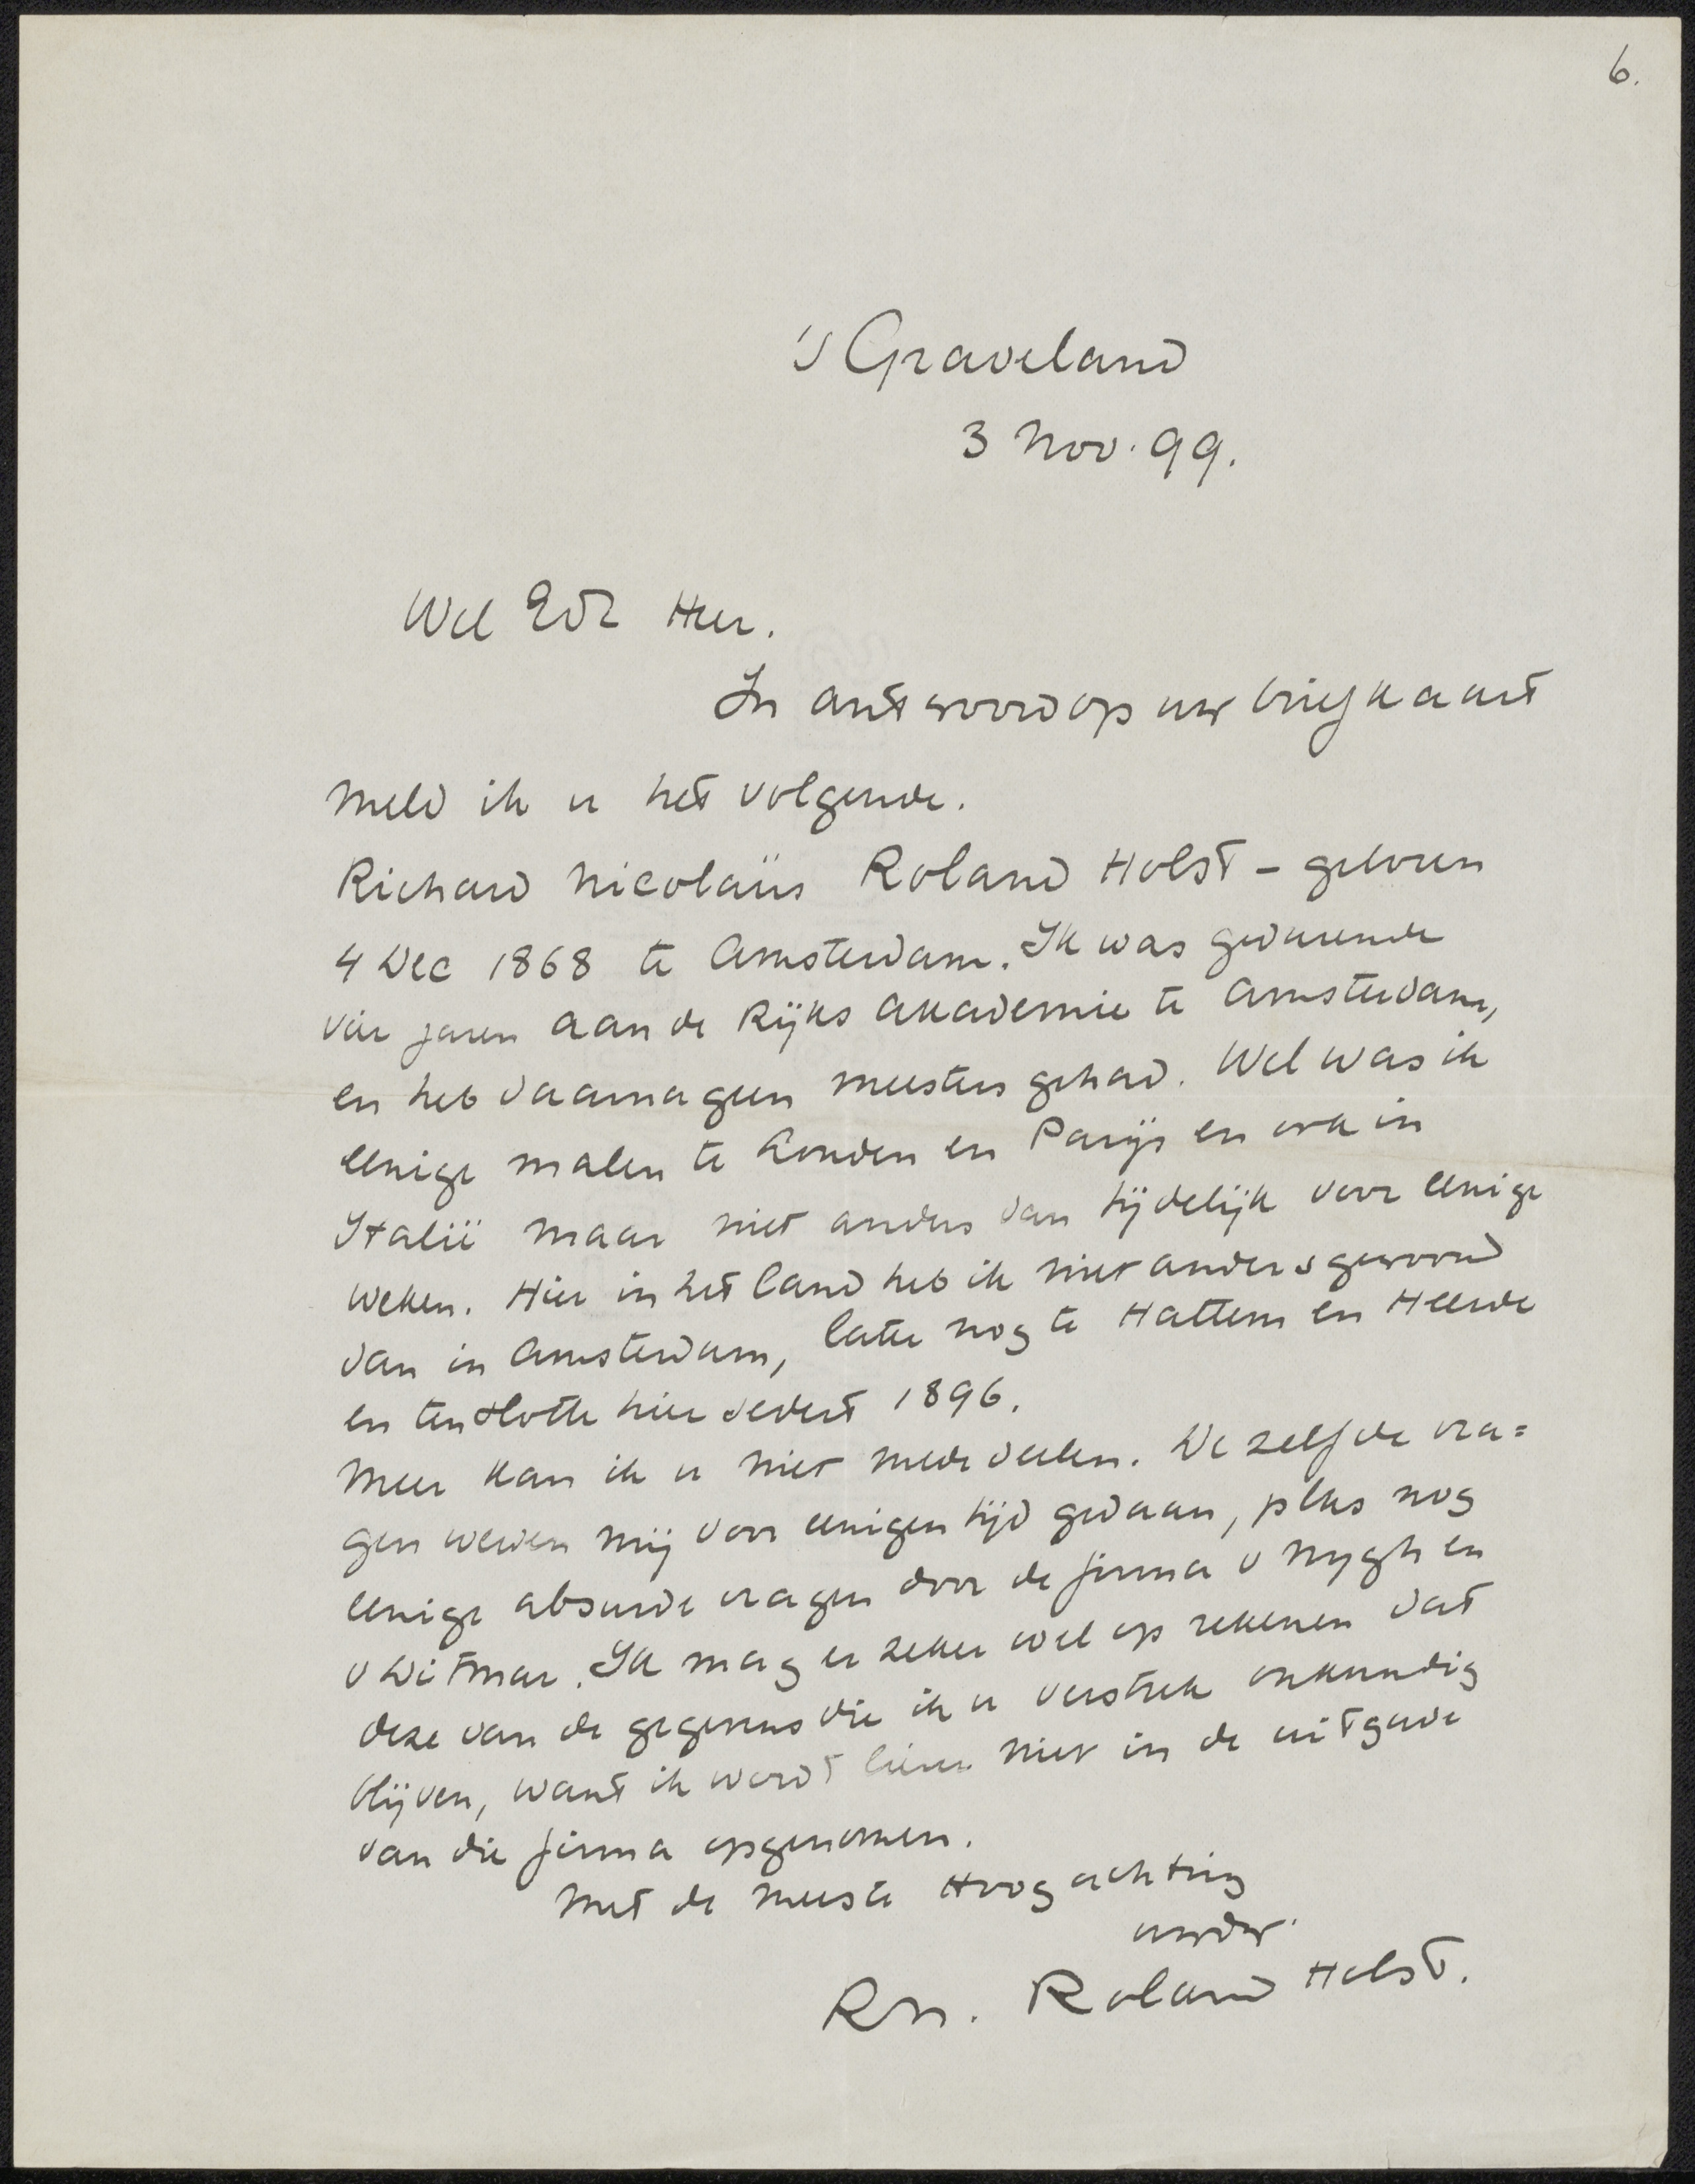 6.
's Graveland
3 Nov. 99.
Wel Edr Heer.
In antwoord op uw briefkaart
meld ik u het volgende.
Richard Nicolaüs Roland Holst - geboren
4 Dec 1868 te Amsterdam. Ik was gedurende
vier jaren aan de Rijks Akademie te Amsterdam,
en heb daarna geen meesters gehad. Wel was ik
eenige malen te Londen en Parijs en ook in
Italië maar niet anders dan tijdelijk voor eenige
weken. Hier in het land heb ik niet anders gewoond
dan in Amsterdam, later nog te Hattem en Heerde
en ten slotte hier sedert 1896.
Meer kan ik u niet mede deelen. De zelfde vra=
gen werden mij voor eenigen tijd gedaan, plus nog
eenige absurde vragen door de firma v Nygh en
v Ditmar. Ik mag er zeker wel op rekenen dat
deze van de gegevens die ik u verstrek onkundig
blijven, want ik wordt liever niet in de uitgave
van die firma opgenomen.
Met de meeste Hoogachting
uwdw.
R n. Roland Holst.